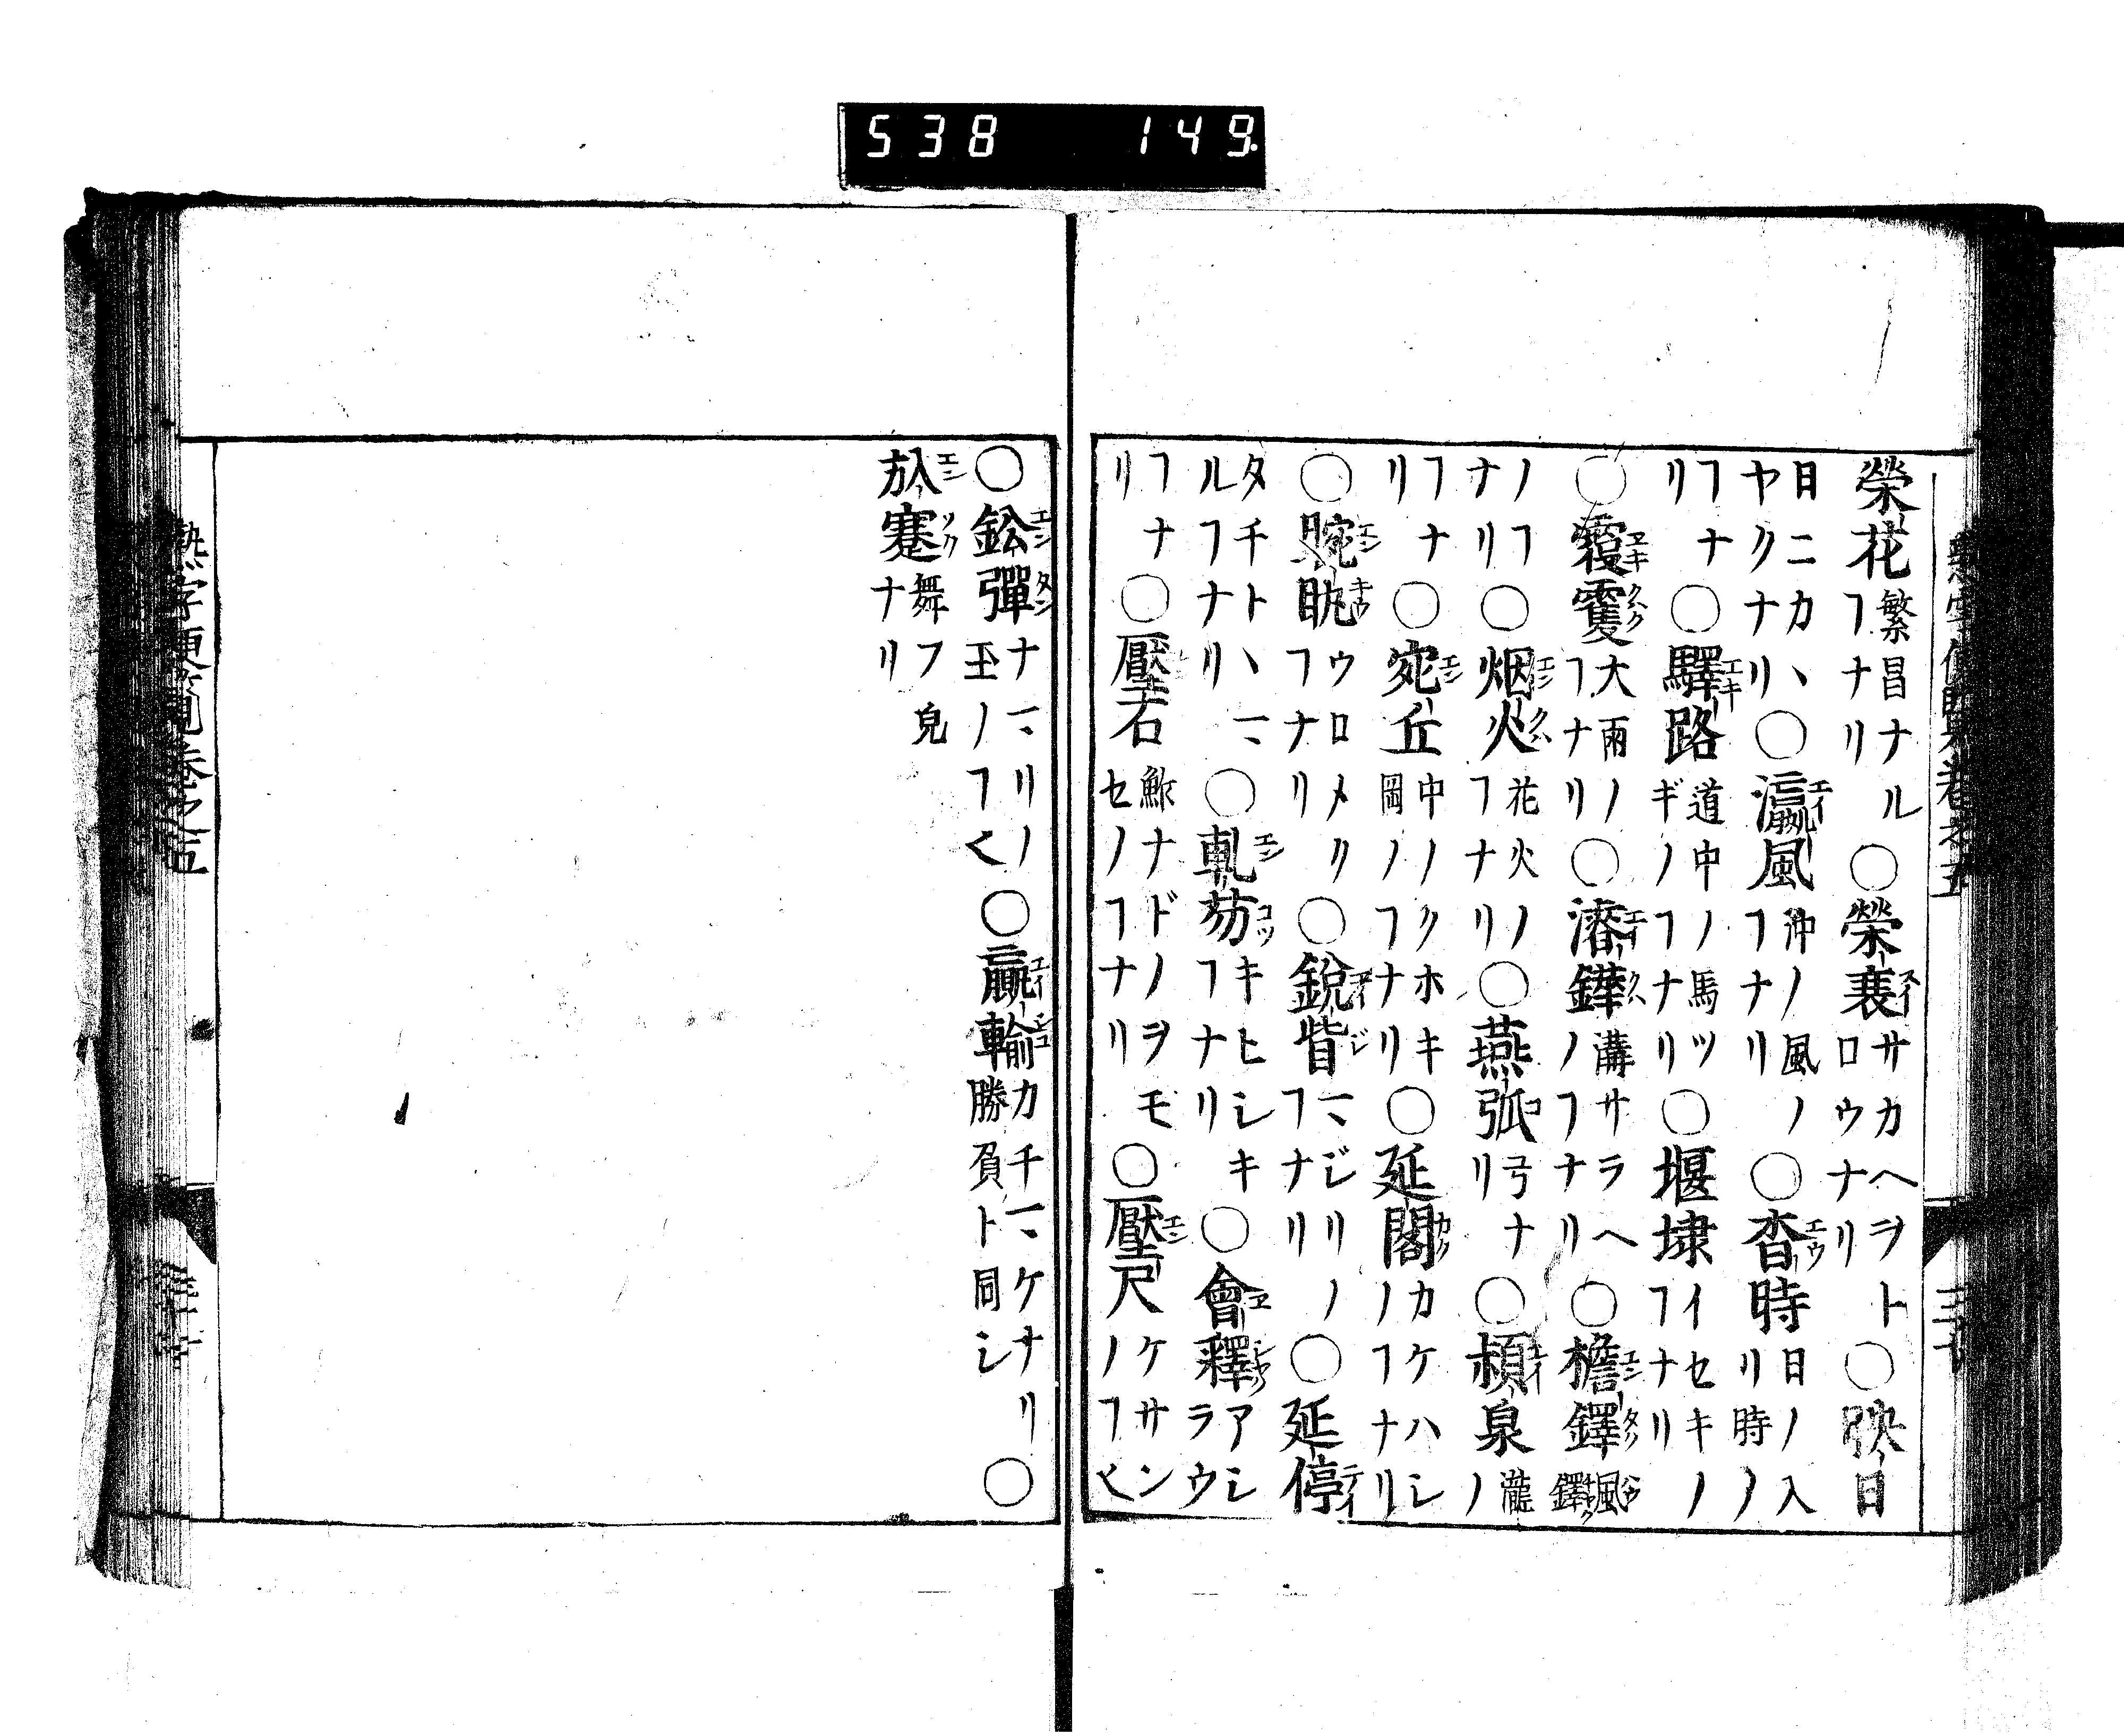 538 149
榮花 繁昌ナルヿナリ ○榮衰 サカヘヲトロウナリ ○映日
日ニカヽヤクナリ ○瀛風 沖ノ風ノヿナリ ○杳時 日ノ入リ時ノ
ヿナリ ○驛路 道中ノ馬ツギノヿナリ ○堰埭 イセキノヿナリ
○霍 大雨ノヿナリ ○濬鏵 溝サラヘノヿナリ ○檐鐸 風鐸
ノヿナリ ○烟火 花火ノヿナリ ○燕弧 弓ナリ ○泉 瀧ノ
ヿナリ ○宛丘 中ノクホキ岡ノヿナリ ○延閣 カケハシノヿナリ
○ ウロメクヿナリ ○銳眥 マジリノヿナリ ○延停
タチトヽマルヿナリ ○軋芴 キヒシキヿナリ ○會釋 アシラウ
ヿナリ ○壓石 鮓ナドノヲモセノヿナリ ○壓尺 ケサンノヿ也
○鈆彈 ナマリノ玉ノヿ也 ○贏輸 カチマケナリ勝負ト同シ ○
㫃蹇 舞フ皃ナリ
熟字便覽卷之五